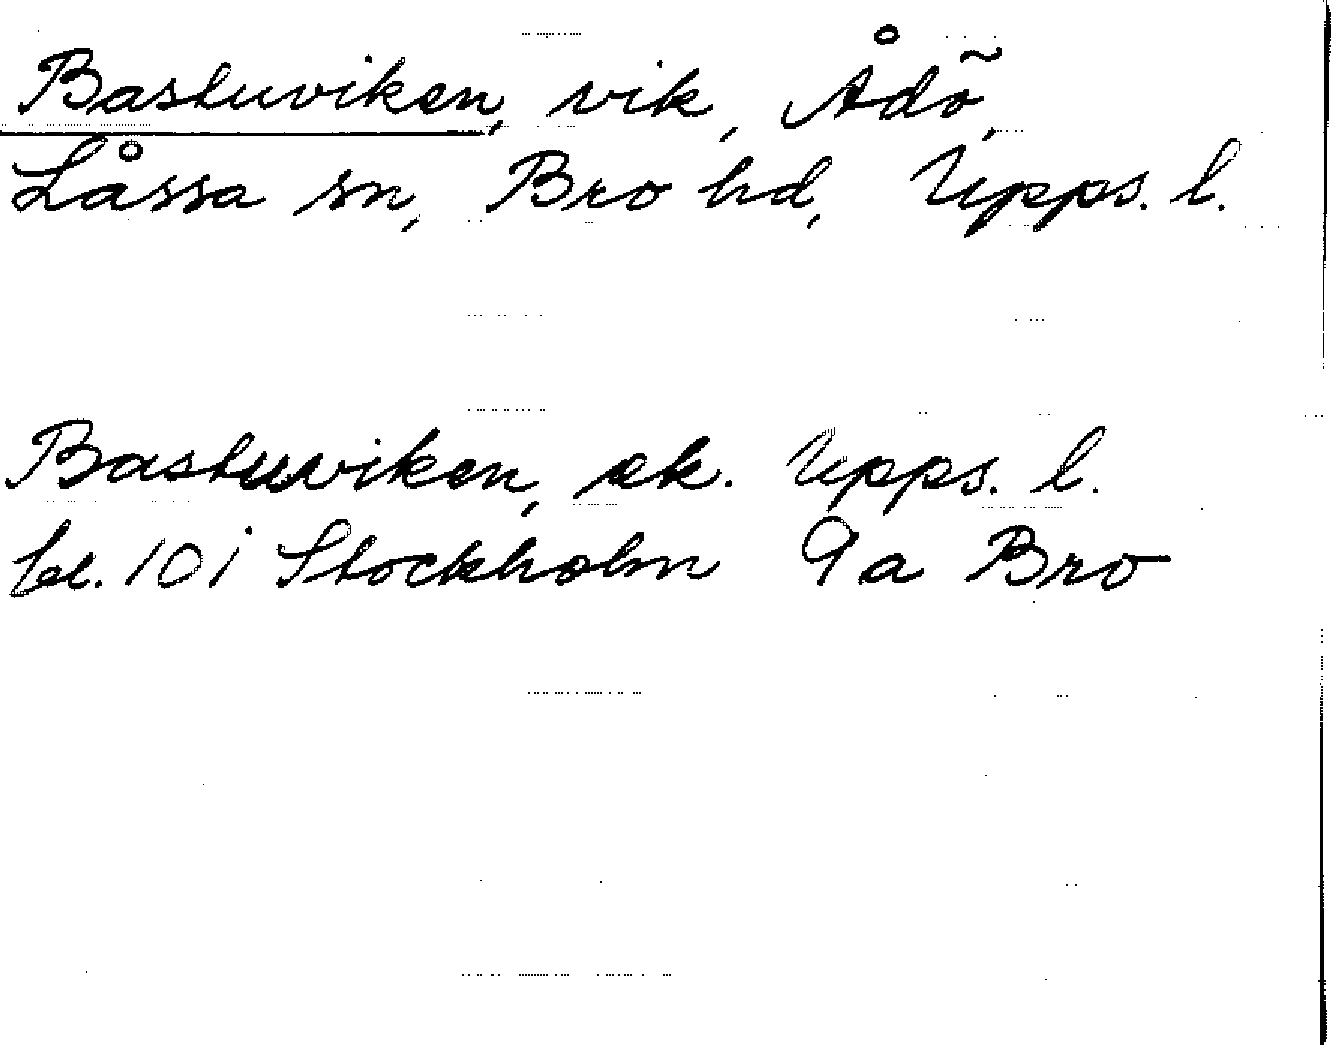 Bastuviken, vik, Ådö,
Låssa sn, Bro hd, Upps. l.
Bastuviken, ek. Upps. l.
bl. 101 Stockholm 9a Bro